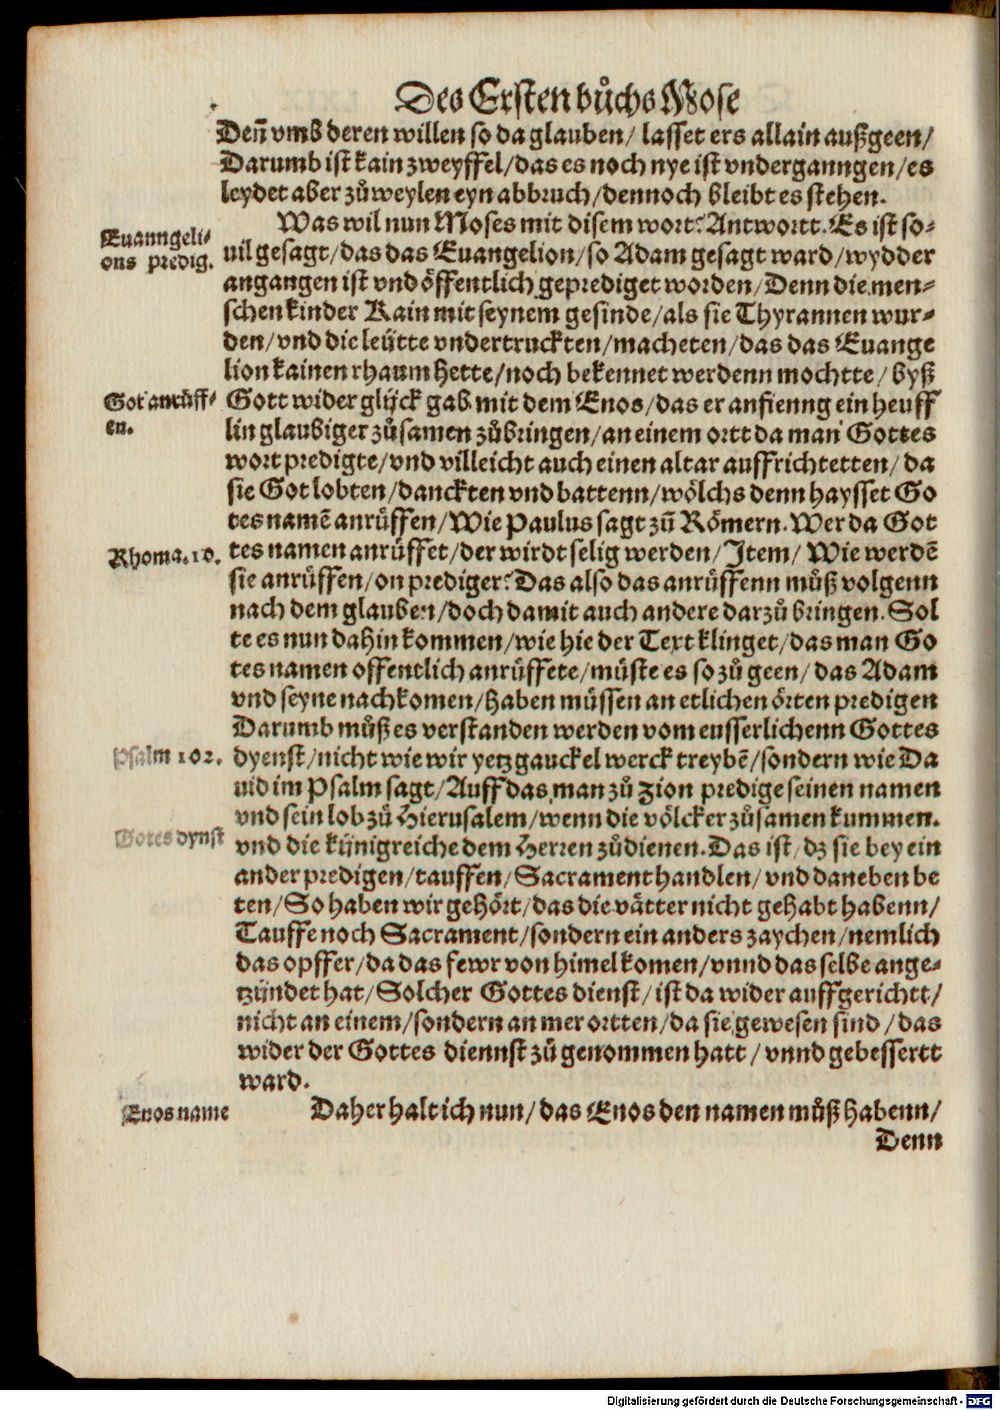 Des Ersten bůchs Mose
Deñ vmb deren willen so da glauben/ lasset ers allain außgeen/
Darumb ist kain zweyffel/das es noch nye ist vnderganngen/es
leydet aber zů weylen eyn abbruch/dennoch bleibt es stehen.
Was wil nun Moses mit disem wort? Antwortt. Es ist so-
Euanngeli-
ons predig.
uil gesagt/das das Euangelion/so Adam gesagt ward/wydder
angangen ist vnd öffentlich geprediget worden/Denn die men-
schen kinder Kain mit seynem gesinde/als sie Thyrannen wur-
den/vnd die leütte vndertruckten/macheten/das das Euange
lion kainen rhaum hette/noch bekennet werdenn mochtte/ byß
Got anrüff-
en.
Gott wider glück gab mit dem Enos/das er anfienng ein heuff
lin glaubiger zů samen zů bringen/an einem ortt da man Gottes
wort predigte/vnd villeicht auch einen altar auffrichtetten/da
sie Got lobten/danckten vnd battenn/wölchs denn haysset Go
tes namē anrüffen/Wie Paulus sagt zů Römern. Wer da Got
Rhoma.10.
tes namen anrüffet/der wirdt selig werden/Item/ Wie werdē
sie anrüffen/on prediger? Das also das anrüffenn můß volgenn
nach dem glauben/doch damit auch andere darzů bringen. Sol
te es nun dahin kommen/wie hie der Text klinget/das man Go
tes namen offentlich anrüffete/müste es so zů geen/das Adam
vnd seyne nachkomen/haben müssen an etlichen örten predigen
Darumb můß es verstanden werden vom eusserlichenn Gottes
Psalm 102.
dyenst/nicht wie wir yetz gauckel werck treybē/sondern wie Da
uid im Psalm sagt/Auff das man zů Zion predige seinen namen
vnd sein lob zů Hierusalem/wenn die völcker zů samen kummen.
Gotes dynst
vnd die künigreiche dem Herren zů dienen. Das ist/dz sie bey ein
ander predigen/tauffen/Sacrament handlen/vnd daneben be
ten/So haben wir gehört/das die vätter nicht gehabt habenn/
Tauffe noch Sacrament/sondern ein anders zaychen/nemlich
das opffer/da das fewr von himel komen/vnnd das selbe ange-
tzündet hat/Solcher Gottes dienst/ist da wider auffgerichtt/
nicht an einem/sondern an mer ortten/da sie gewesen sind/das
wider der Gottes diennst zů genommen hatt/vnnd gebessertt
ward.
Enos name
Daher halt ich nun/das Enos den namen můß habenn/
Denn
Digitalisierung gefördert durch die Deutsche Forschungsgemeinschaft - DFG